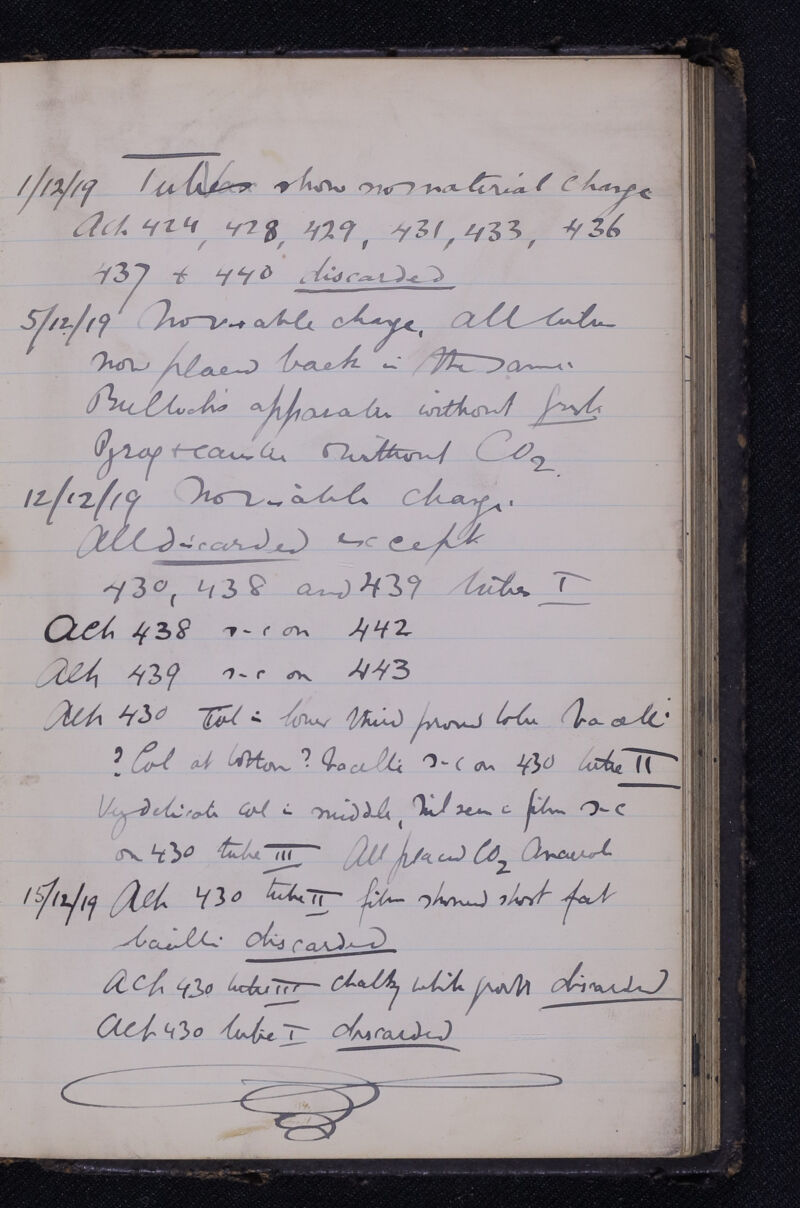 1/12/19 Tubes show no material change
Ach 424, 428, 429, 431, 433, 436
437 + 440 discarded
5/12/19 No visible change. All tubes
now placed back in the same
Bulloch's apparatus without fresh
Pyrog + caustic & without CO2.
12/12/19 No visible change.
All discarded except
430, 438 and 439 tubes I
Ach 438 s-c on 442
Ach 439 s-c on 443
Ach 430 Col in lower third proved to be bacilli
? Col at bottom ? bacilli s-c on 430 tube II
Vy delicate col in middle, Nil seen in film s-c
on 430 tube III All placed CO2 Anaerob
15/12/19 Ach 430 tube II film showed short fat
bacilli discarded
Ach 430 tube III chalky white growth discarded
Ach 430 tube I discarded